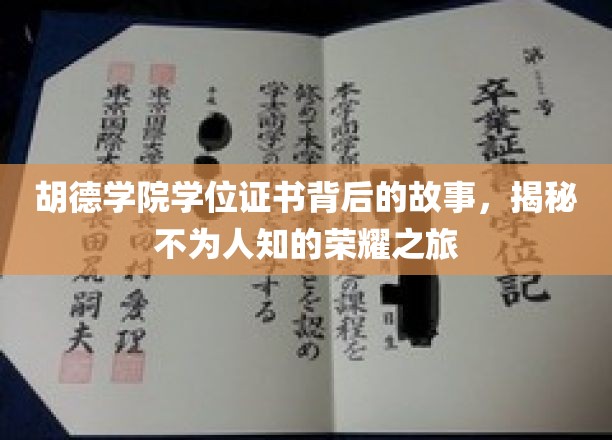 胡德学院学位证书背后的故事，揭秘
不为人知的荣耀之旅
第 号
卒業証書 学位記
日生
本学商学部 定の課程を
修めて本学 ことを認め
学士(商学)の する
平成
東京国際大学 田村愛理
東京国際大 田 嗣夫